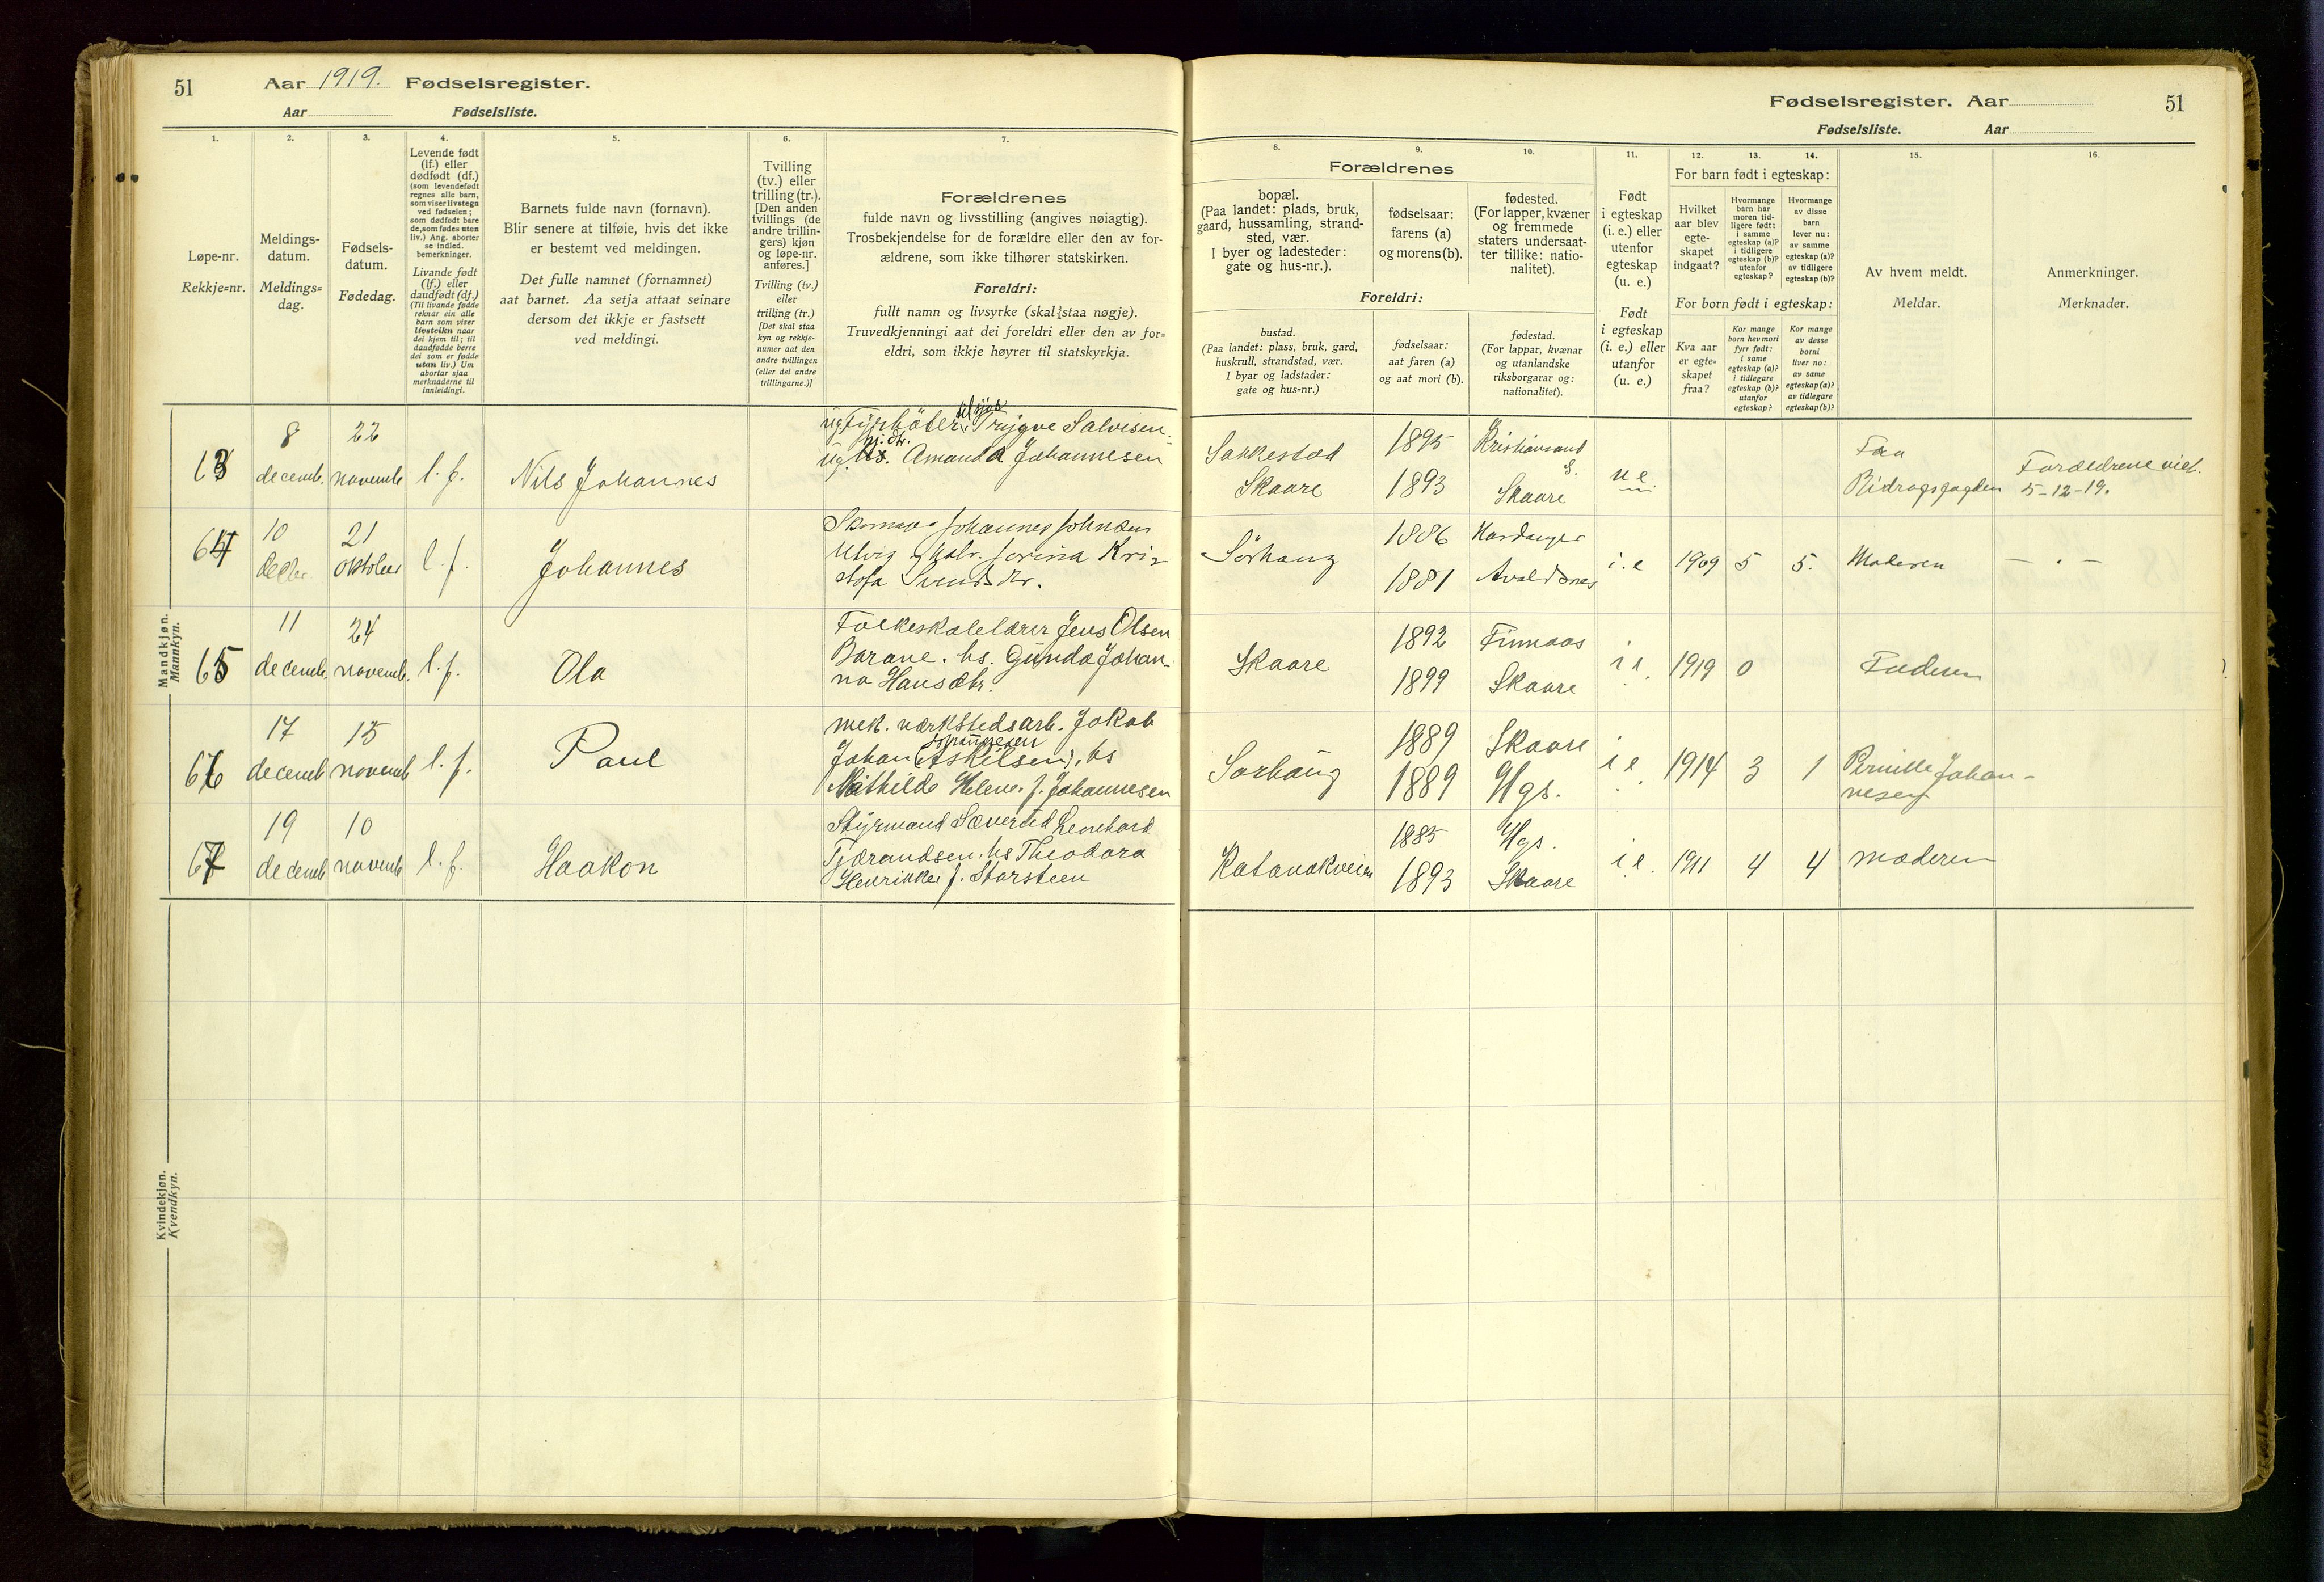 51
Aar 1919. Fødselsregister.
Aar Fødselsliste.
1.
2.
3.
4.
5.
6.
7.
Løpe-nr.
Rekkje=nr.
Meldings-
datum.
Meldings=
dag.
Fødsels-
datum.
Fødedag.
Levende født
(lf.) eller
dødfødt (df.)
(som levendefødt
regnes alle barn,
som viser livstegn
ved fødselen;
som dødfødt bare
de, som fødes uten
liv.) Ang. aborter
se indled.
bemerkninger.
Livande født
(lf.) eller
daudfødt (df.)
(Til livande fødde
reknar ein alle
barn som viser
livsteikn naar
dei kjem til; til
daudfødde berre
dei som er fødde
utan liv.) Um
abortar sjaa
merknaderne til
innleidingi.
Barnets fulde navn (fornavn).
Blir senere at tilføie, hvis det ikke
er bestemt ved meldingen.
Det fulle namnet (fornamnet)
aat barnet. Aa setja attaat seinare
dersom det ikkje er fastsett
ved meldingi.
Tvilling
(tv.) eller
trilling (tr.).
[Den anden
tvillings (de
andre trillin-
gers) kjøn
og løpe-nr.
anføres.]
Tvilling (tv.)
eller
trilling (tr.)
[Det skal staa
kyn og rekkje-
numer aat den
andre tvillingen
(eller dei andre
trillingarne.)]
Forældrenes
fulde navn og livsstilling (angives nøiagtig).
Trosbekjendelse for de forældre eller den av for-
ældrene, som ikke tilhører statskirken.
Foreldri:
fullt namn og livsyrke (skal staa nøgje).
Truvedkjenningi aat dei foreldri eller den av for=
eldri, som ikkje høyrer til statskyrkja.
Mandkjøn.
Mannkyn.
63
8
decemb.
22
novemb
l. f.
Nils Johannes
ug Fyrbøter til sjøs Trygve Salvesen.
ug. pi. dtr. Amanda Johannesen
64
10
decbr
21
oktober
l. f.
Johannes
Johannes Johnsen
Utvig Kri-
stofa Svendsdtr.
65
11
decemb.
24
novemb.
l. f.
Ola
Folkeskolelærer Jens Olsen
Barane. hs. Gunda Johan-
na Hansdtr.
66
17
decemb
15
novemb
l. f.
Paul
mek. værkstedsarb. Jakob
Johan Johannesen (Askilsen), hs
Mathilde Helene f. Johannesen
67
19
decemb
10
novemb
l. f.
Haakon
Styrmand Severud Leonhard
Tjerandsen. hs Theodora
Henrikke f. Storsteen
Kvindekjøn.
Kvendkyn.
Fødselsregister. Aar
51
Fødselsliste. Aar
8.
9.
10.
11.
12.
13.
14.
15.
16.
Forældrenes
bopæl.
(Paa landet: plads, bruk,
gaard, hussamling, strand-
sted, vær.
I byer og ladesteder:
gate og hus-nr.).
fødselsaar:
farens (a)
og morens (b).
fødested.
(For lapper, kvæner
og fremmede
staters undersaat-
ter tillike: natio-
nalitet).
Foreldri:
bustad.
(Paa landet: plass, bruk, gard,
huskrull, strandstad, vær.
I byar og ladstader:
gate og hus=nr.)
fødselsaar:
aat faren (a)
og aat mori (b).
fødestad.
(For lappar, kvænar
og utanlandske
riksborgarar og:
nationalitet).
Født
i egteskap
(i. e.) eller
utenfor
egteskap
(u. e.)
Født
i egteskap
(i. e.) eller
utanfor
(u. e.)
For barn født i egteskap:
Hvilket
aar blev
egte-
skapet
indgaat?
Hvormange
barn har
moren tid-
ligere født:
i samme
egteskap (a)?
i tidligere
egteskap (b)?
utenfor
egteskap?
Hvormange
av disse
barn
lever nu:
av samme
egteskap (a)?
av tidligere
egteskap (b)?
For born født i egteskap:
Kva aar
er egte=
skapet
fraa?
Kor mange
born hev mori
fyrr født:
i same
egteskap (a)?
i tidlegare
egteskap (b)?
utanfor
egteskap?
Kor mange
av desse
borni
liver no:
av same
egteskap (a)?
av tidlegare
egteskap (b)?
Av hvem meldt.
Meldar.
Anmerkninger.
Merknader.
Sakkestad
Skaare
1895
1893
Kristiansand
S.
Skaare
u e.
Fra
Bidragsfogden
Forældrene viet.
5-12-19.
Sørhaug
1886
1881
Hardanger
Avaldsnes
i. e
1909
5
5.
Moderen
Skaare
1892
1899
Finnaas
Skaare
i e.
1919
0
Faderen
Sørhaug
1889
1889
Skaare
Hgs.
i e
1914
3
1
Pernille Johan-
nesen
Katanakveien
1885
1893
Hgs.
Skaare
i e.
1911
4
4
moderen